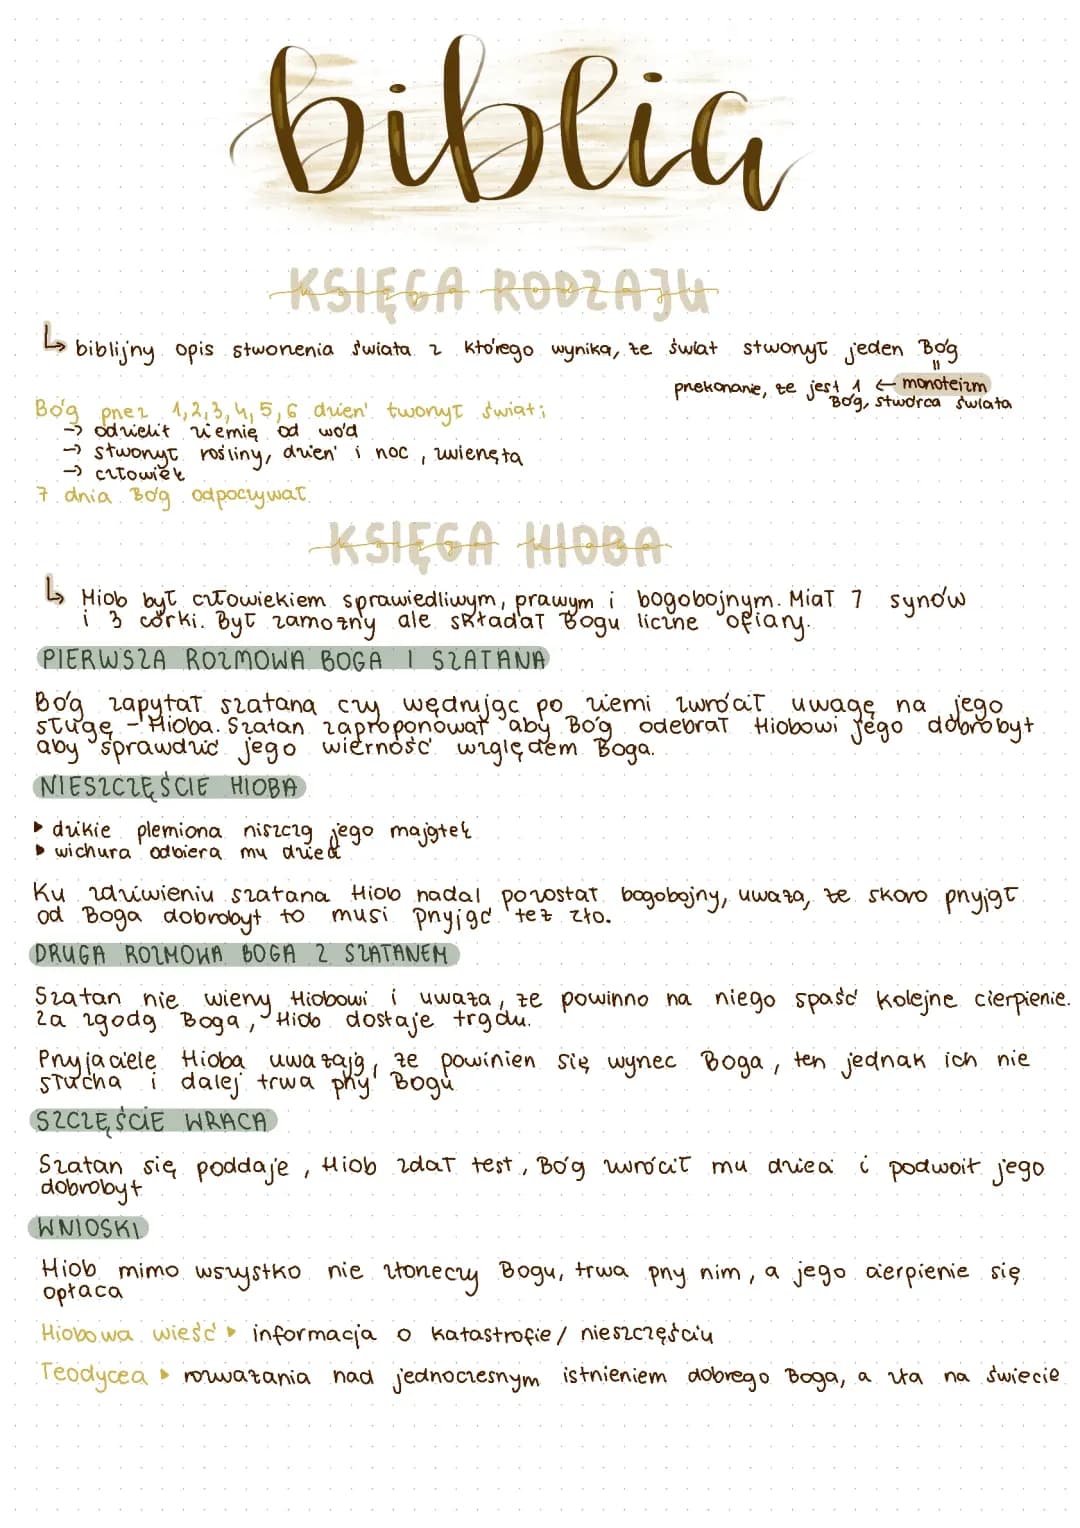 biblia
KSIĘGA RODZAJU
↳ biblijny opis stworzenia świata z którego wynika, że świat stworzył jeden Bóg
przekonanie, że jest 1 ← monoteizm
Bóg, stwórca świata
Bóg przez 1,2,3,4,5,6 dzień tworzył świat:
→ oddzielił ziemię od wód
→ stworzył rośliny, dzień i noc, zwierzęta
→ człowiek
7 dnia Bóg odpoczywał
KSIĘGA HIOBA
↳ Hiob był człowiekiem sprawiedliwym, prawym i bogobojnym. Miał 7 synów
i 3 córki. Był zamożny ale składał Bogu liczne ofiary.
PIERWSZA ROZMOWA BOGA I SZATANA
Bóg zapytał szatana czy wędrując po ziemi zwrócił uwagę na jego
sługę - Hioba. Szatan zaproponował aby Bóg odebrał Hiobowi jego dobrobyt
aby sprawdzić jego wierność względem Boga.
NIESZCZĘŚCIE HIOBA
▸ dzikie plemiona niszczą jego majątek
▸ wichura odbiera mu dzieci
Ku zdziwieniu szatana Hiob nadal pozostał bogobojny, uważa, że skoro przyjął
od Boga dobrobyt to musi przyjąć też zło.
DRUGA ROZMOWA BOGA Z SZATANEM
Szatan nie wierzy Hiobowi i uważa, że powinno na niego spaść kolejne cierpienie.
Za zgodą Boga, Hiob dostaje trądu.
Przyjaciele Hioba uważają, że powinien się wyrzec Boga, ten jednak ich nie
słucha i dalej trwa przy Bogu
SZCZĘŚCIE WRACA
Szatan się poddaje, Hiob zdał test, Bóg zwrócił mu dzieci i podwoił jego
dobrobyt
WNIOSKI
Hiob mimo wszystko nie złorzeczy Bogu, trwa przy nim, a jego cierpienie się
opłaca
Hiobowa wieść ▸ informacja o katastrofie/ nieszczęściu
Teodycea ▸ rozważania nad jednoczesnym istnieniem dobrego Boga, a zła na świecie